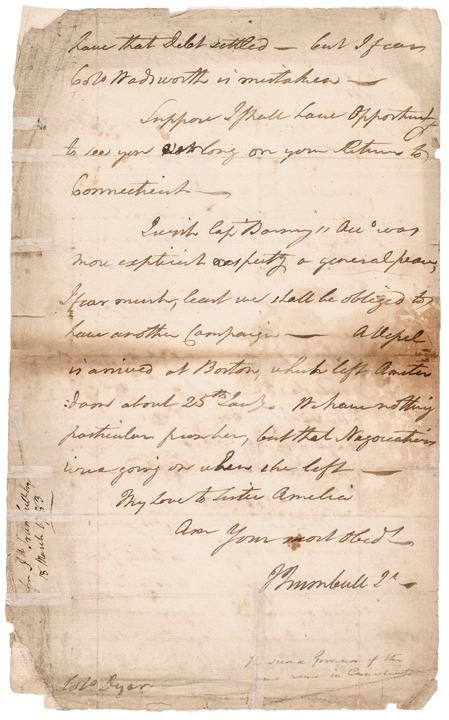 have that Debt settled — but I fear
Colo Wadsworth is mistaken —
Suppose I shall have Opportunity
to see you long on your Return to
Connecticut —
I wish Capt Acco was
more explicit respectg a general peace,
I fear much, least we shall be obliged to
have another Campaign — A Vessel
is arrived at Boston, which left Amster
dam about 25th Jany. We have nothing
particular from her, but that Negociations
was going on when she left —
My Love to Sister Amelia
Am Your most Obedt
J Trumbull Jr
Colo Dyer
18 March 1783
Governor of the
name in Connecticut